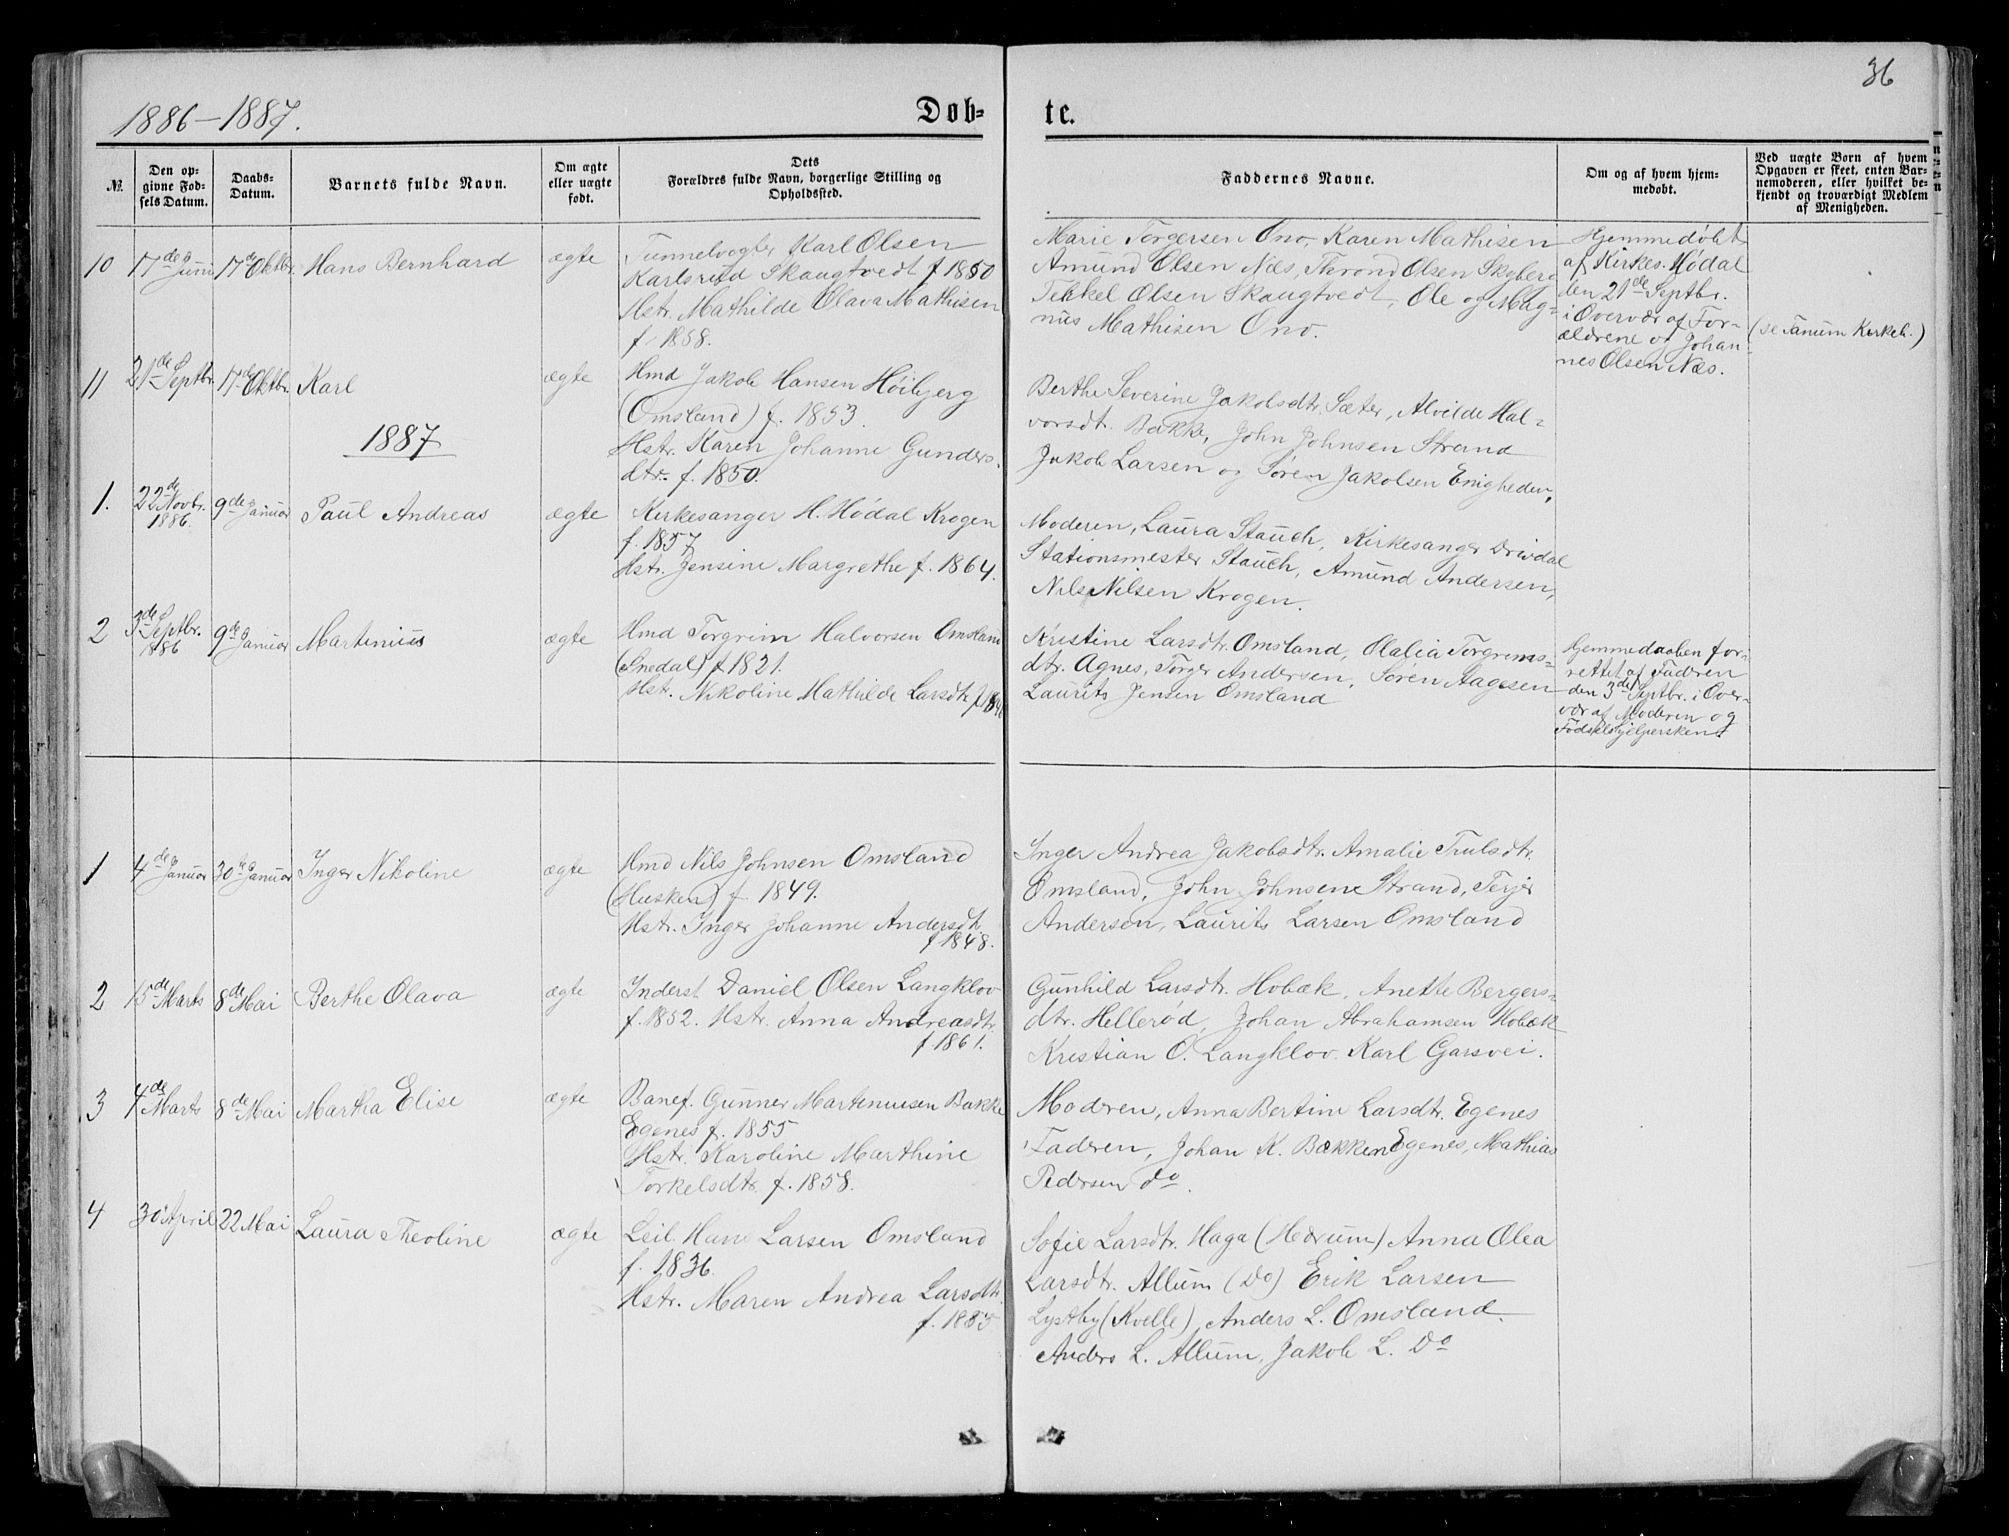 36
1886–1887.
Døb-
te.
№.
Den op-
givne Fød-
sels Datum.
Daabs-
Datum.
Barnets fulde Navn.
Om ægte
eller uægte
født.
Dets
Forældres fulde Navn, borgerlige Stilling og
Opholdssted.
Faddernes Navne.
Om og af hvem hjem-
medøbt.
Ved uægte Børn af hvem
Opgaven er skeet, enten Bar-
nemoderen, eller hvilket be-
kjendt og troværdigt Medlem
af Menigheden.
10 17de Juni 17de Oktbr. Hans Bernhard ægte
Tunnelvogter Karl Olsen
Karlsrud Skaugtvedt f 1850
Hstr. Mathilde Olava Mathisen
f. 1858.
Marie Torgersen Ono, Karen Mathisen
Amund Olsen Næs, Thrond Olsen Skyberg
Tekkel Olsen Skaugtvedt, Ole og Mag-
nus Mathisen Ono.
Hjemmedøbt
af Kirkes. Hødal
den 21de Septbr.
i Overvær af For-
ældrene og Johan-
nes Olsen Næs.
(se Tanum Kirkeb.)
11 21de Septbr 17de Oktbr. Karl ægte
Hmd Jakob Hansen Høibjerg
(Omsland) f. 1853.
Hstr. Karen Johanne Gunders-
dtr. f. 1850.
Berthe Severine Jakobsdtr. Sæter, Alvilde Hal-
vorsdt. Bakke, John Johnsen Strand
Jakob Larsen og Søren Jakolsen Enigheden.
1887
1. 22de Novbr. 1886. 9de Januar Paul Andreas ægte
Kirkesanger H. Hødal Krogen
f. 1857
Hstr. Jensine Margrethe f. 1864.
Moderen, Laura Stauch, Kirkesanger Drivdal
Stationsmester Stauch, Amund Andersen,
Nils Nilsen Krogen.
2 3de Septbr. 1886 9de Januar Martinius ægte
Hmd Torgrim Halvorsen Omsland
(Snedal) f 1821.
Hst. Nikoline Mathilde Larsdtr
Kristine Larsdtr. Omsland, Olalia Torgrims-
dtr. Agnes, Torger Andersen, Søren Aagesen
Laurits Jensen Omsland
Hjemmedaaben for-
rettet af Faderen
den 3de Septbr. i Over-
vær af Moderen og
Fødselshjelpersken.
1 4de Januar 30te Januar Inger Nikoline ægte
Hmd Nils Johnsen Omsland
(Husken) f. 1849.
Hstr. Inger Johanne Andersdt.
f 1848.
Inger Andrea Jakobsdtr. Amalie Trulsdtr.
Omsland, John Johnsen Strand, Terjer
Andersen, Laurits Larsen Omsland
2 15de Marts 8de Mai Berthe Olava ægte
Inderst Daniel Olsen Langklov
f. 1852. Hstr. Anna Andreasdtr.
f 1861.
Gunhild Larsdtr. Hobæk, Anette Bergers-
dtr. Hellerød, Johan Abrahamsen Hobæk
Kristian O. Langklov. Karl Garsvei.
3 4de Marts 8de Mai Martha Elise ægte
Banef. Gunner Martinusen Bakke
Egenes f. 1855
Hstr. Karoline Marthine
Torkelsdtr. f. 1858.
Moderen, Anna Bertine Larsdtr. Egenes
Faderen, Johan K. Bækken Egenes, Mathias
Pedersen do.
4 30 April 22 Mai Laura Theoline ægte
Leil. Hans Larsen Omsland
f. 1836.
Hstr. Maren Andrea Larsdtr.
f. 1885
Sofie Larsdtr. Haga (Hedrum) Anna Olea
Larsdtr. Allum (Do) Erik Larsen
Lystby (Kvelle), Anders L. Omsland.
Anders L. Allum, Jakob L. Do